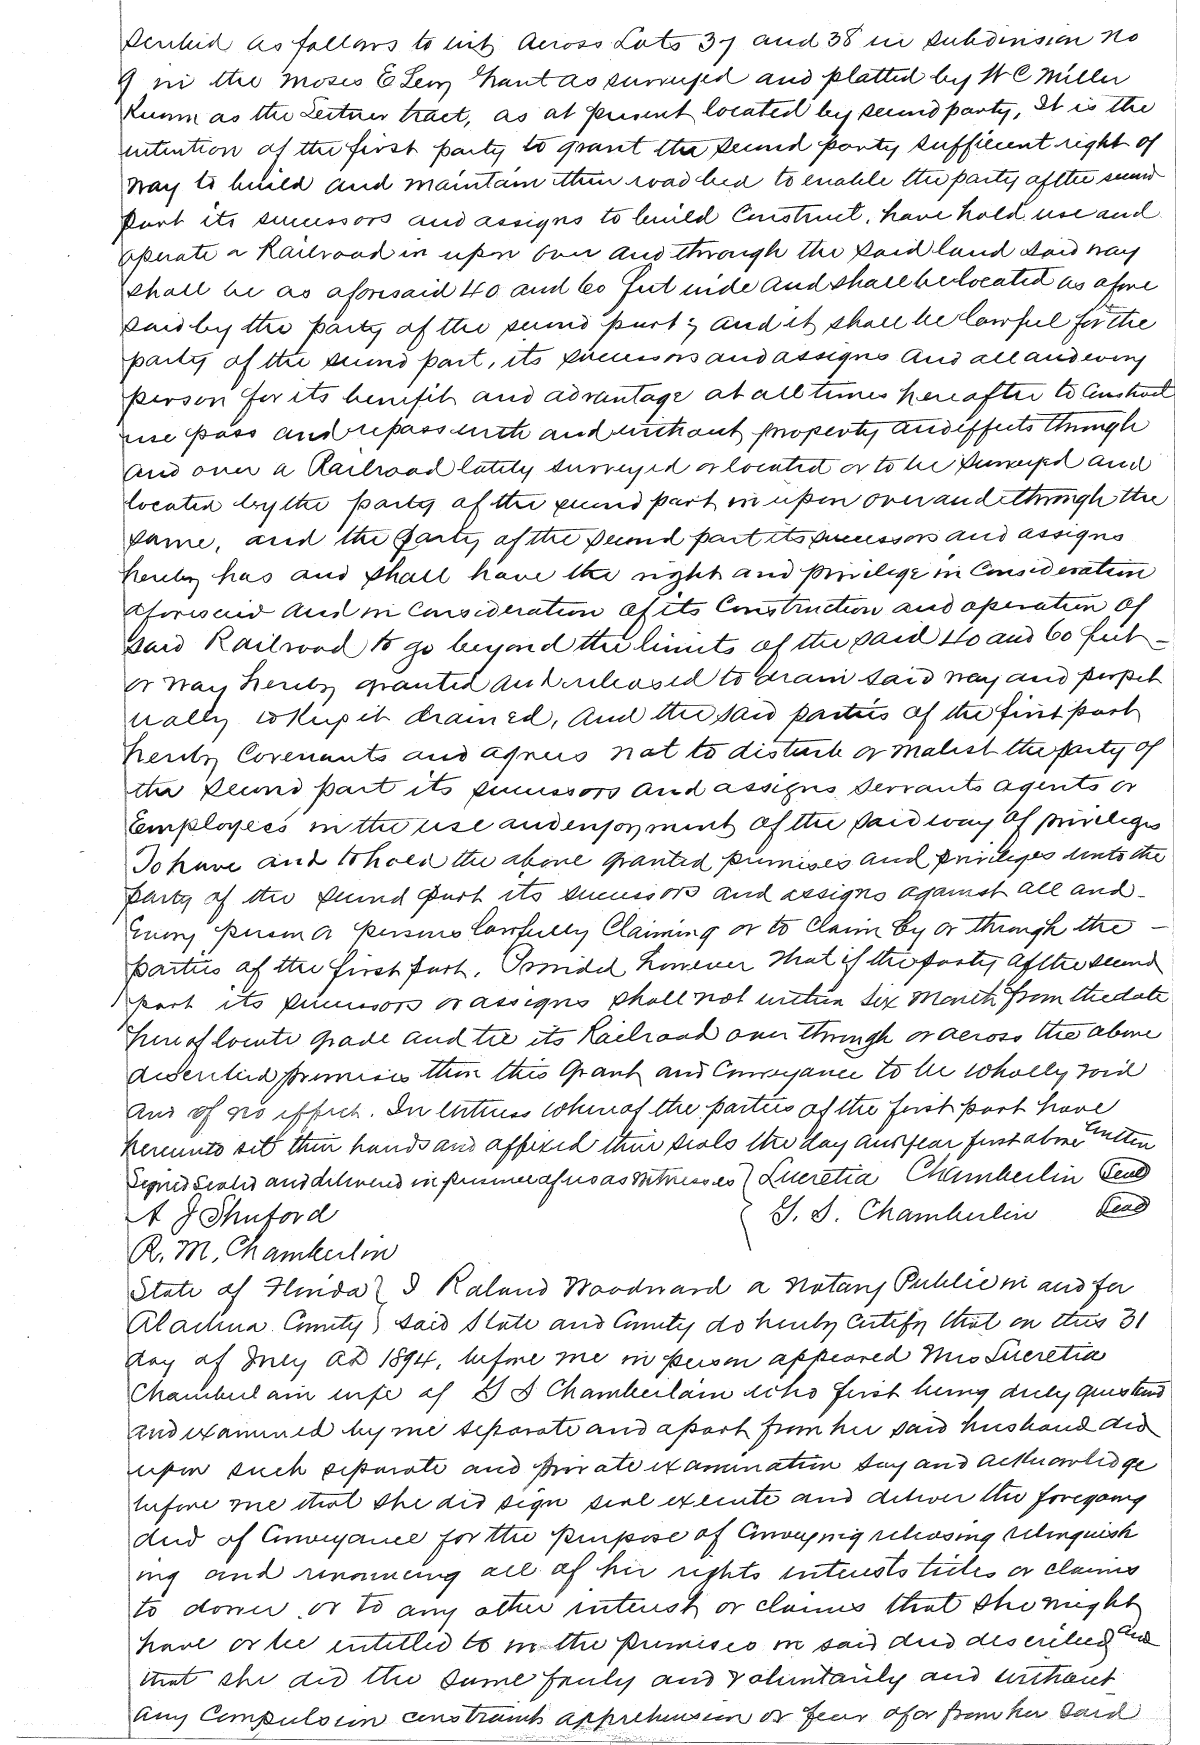 scribed as follows to wit Across Lots 37 and 38 in subdivision No
9 in the Moses E Levy Grant as surveyed and platted by W C Miller
Known as the Leitner tract, as at present located by second party, It is the
intention of the first party to grant the second party sufficient right of
way to build and maintain their road bed to enable the party of the second
part its successors and assigns to build Construct, have hold use and
operate a Railroad in upon over and through the said land said way
shall be as aforesaid 40 and 60 feet wide and shall be located as afore
said by the party of the second part; and it shall be lawful for the
party of the second part, its successors and assigns and all and every
person for its benefit and advantage at all times hereafter to Construct
use pass and repass with and without property and effects through
and over a Railroad lately surveyed or located or to be surveyed and
located by the party of the second part in upon over and through the
same, and the party of the second part its successors and assigns
hereby has and shall have the right and privilege in Consideration
aforesaid and in consideration of its Construction and operation of
said Railroad to go beyond the limits of the said 40 and 60 feet
or way hereby granted and released to drain said way and perpet
ually to keep it drained, And the said parties of the first part
hereby Covenants and agrees not to disturb or molest the party of
the second part its successors and assigns servants agents or
Employees in the use and enjoyment of the said way of privileges
To have and to hold the above granted premises and privileges unto the
party of the second part its successors and assigns against all and
Every person or persons lawfully Claiming or to claim by or through the
parties of the first part. Provided however that if the party of the second
part its successors or assigns shall not within six Month from the date
hereof locate grade and tie its Railroad over through or across the above
described premises then this Grant and Conveyance to be wholly void
and of no effect. In witness whereof the parties of the first part have
hereunto set their hands and affixed their seals the day and year first above written
Signed sealed and delivered in presence of us as witnesses } Lucretia Chamberlin Seal
A J Shuford } G. S. Chamberlin Seal
R. M. Chamberlin
State of Florida } I Roland Woodward a Notary Public in and for
Alachua County } said State and County do hereby certify that on this 31
day of July AD 1894, before me in person appeared Mrs Lucretia
Chamberlain wife of G S Chamberlain who first being duly questiond
and examined by me separate and apart from her said husband did
upon such separate and private examination say and acknowledge
before me that she did sign seal execute and deliver the foregoing
deed of Conveyance for the purpose of Conveying releasing relinquish
ing and renouncing all of her rights interests titles or claims
to dower or to any other interest or claims that she might
have or be entitled to in the premises in said deed described and
that she did the same freely and voluntarily and without
any Compulsion constraint apprehension or fear of or from her said